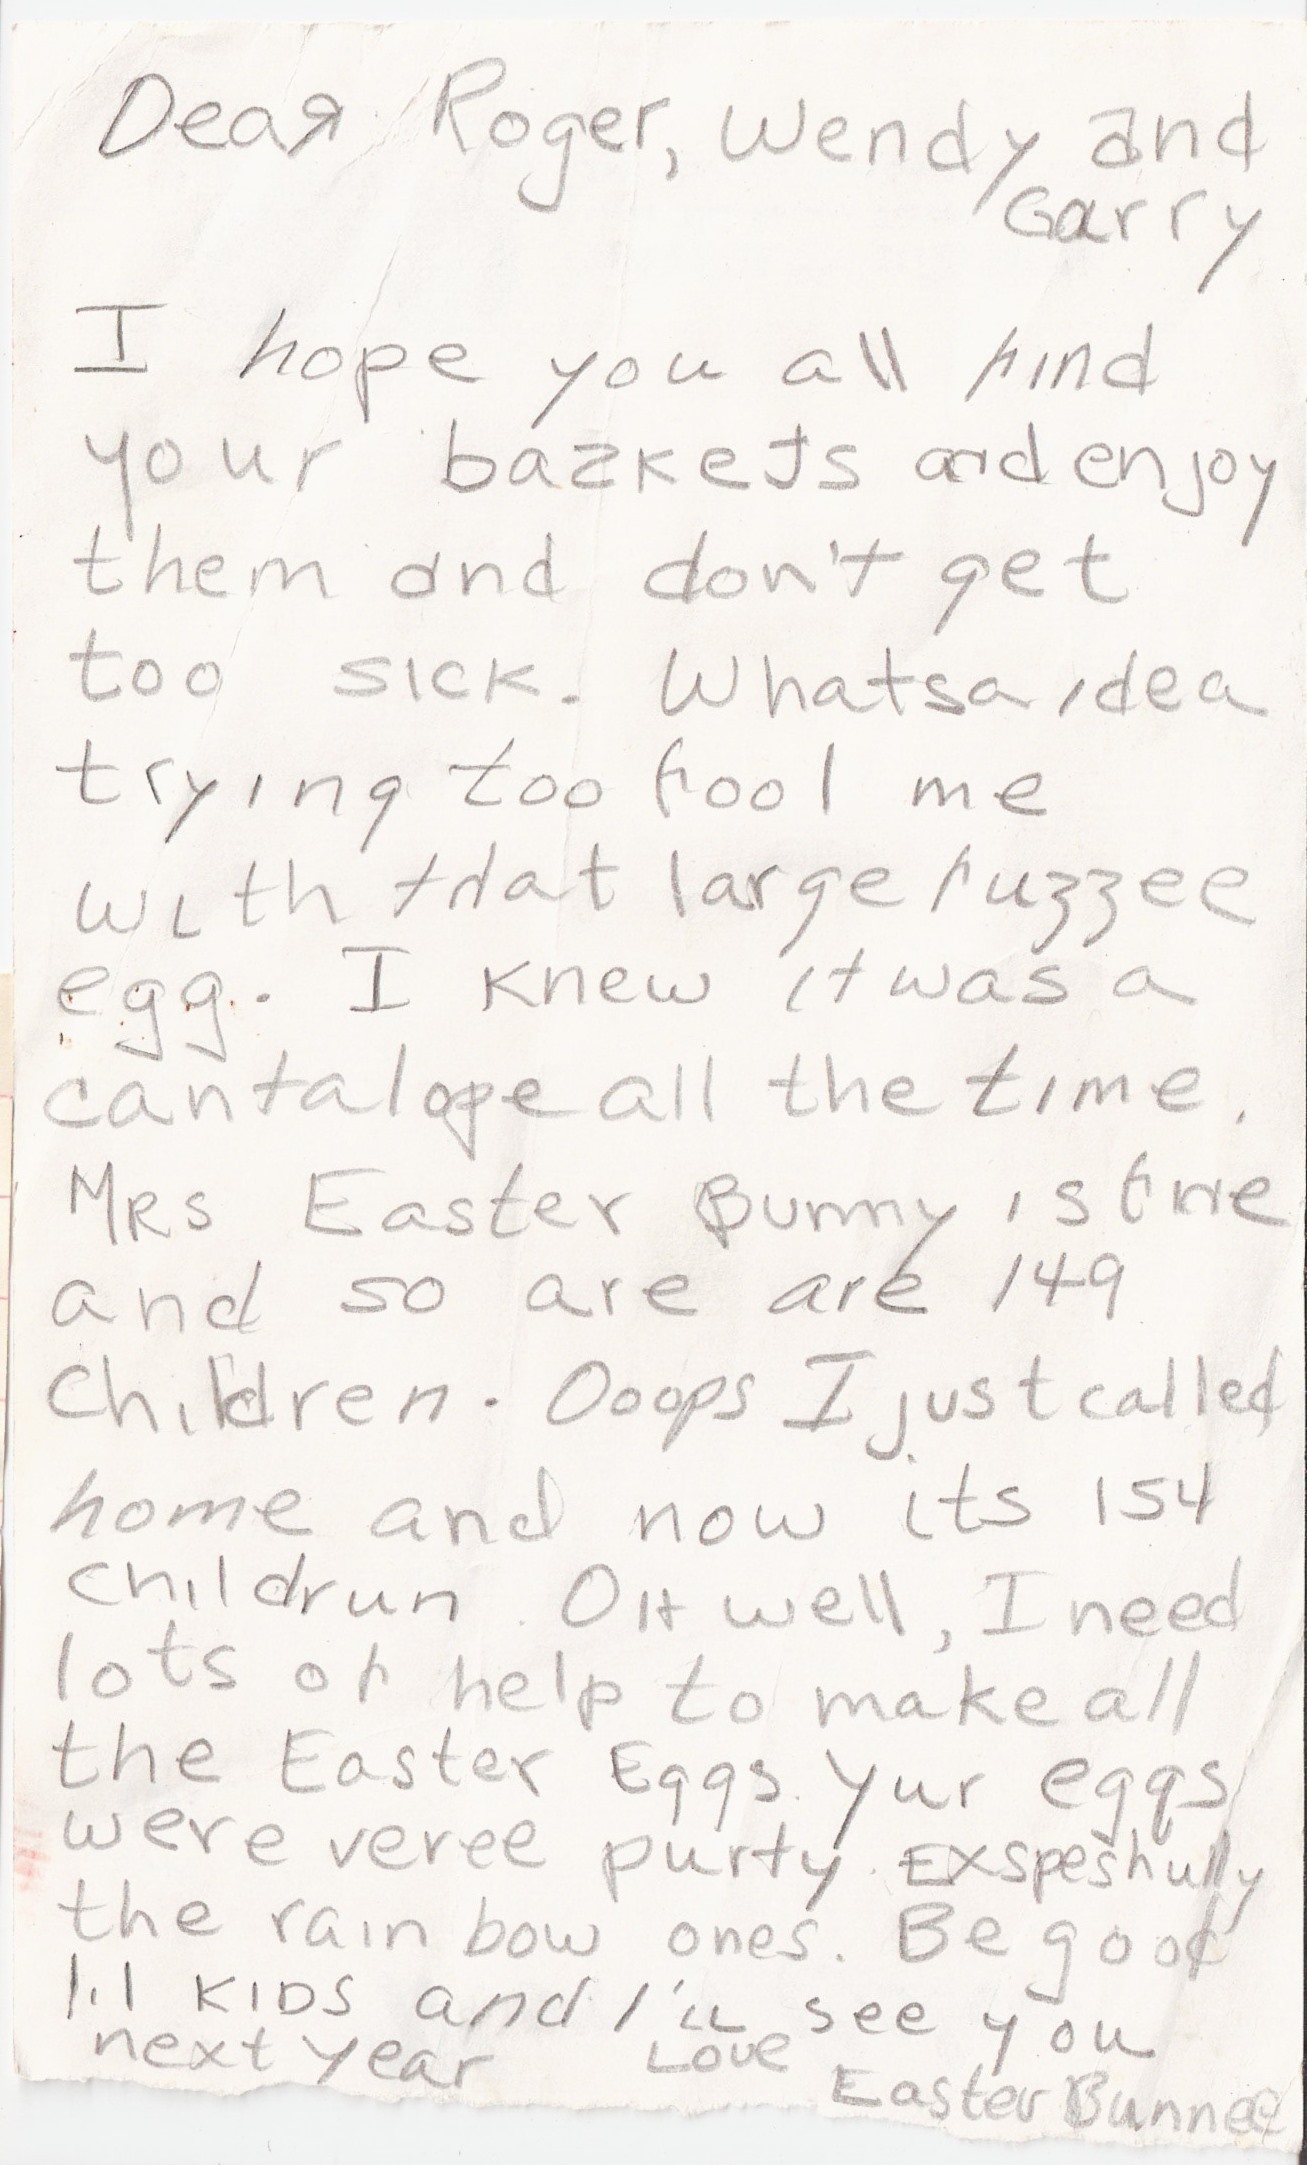 Dear Roger, Wendy and
Garry
I hope you all find
your bazkets and enjoy
them and don't get
too sick. Whatsa idea
trying too fool me
with that large fuzzee
egg. I knew it was a
cantalope all the time.
MRS Easter Bunny is fine
and so are are 149
Children. Ooops I just called
home and now its 154
childrun. OH well, I need
lots of help to make all
the Easter Eggs. Yur eggs
were veree purty. Exspeshully
the rainbow ones. Be good
lil KIDS and I'll see you
next year Love
Easter Bunnee